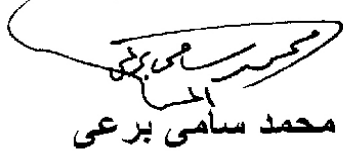 محمد سامى برعى
محمد سامى برعى